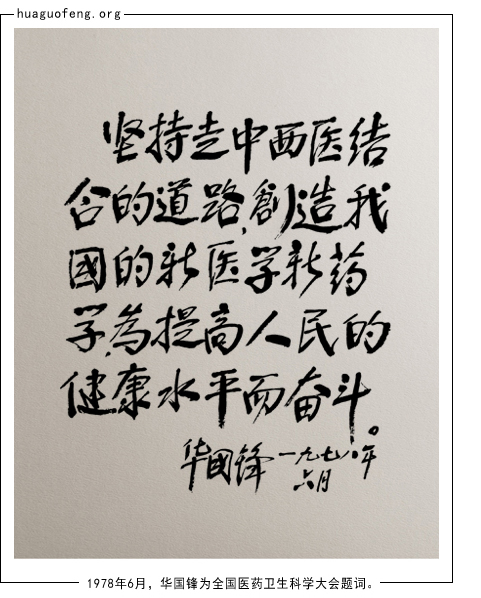 huaguofeng.org
坚持走中西医结
合的道路,創造我
國的新医学新药
学,為提高人民的
健康水平而奋斗。
华國锋 一九七八年
六月
1978年6月，华国锋为全国医药卫生科学大会题词。